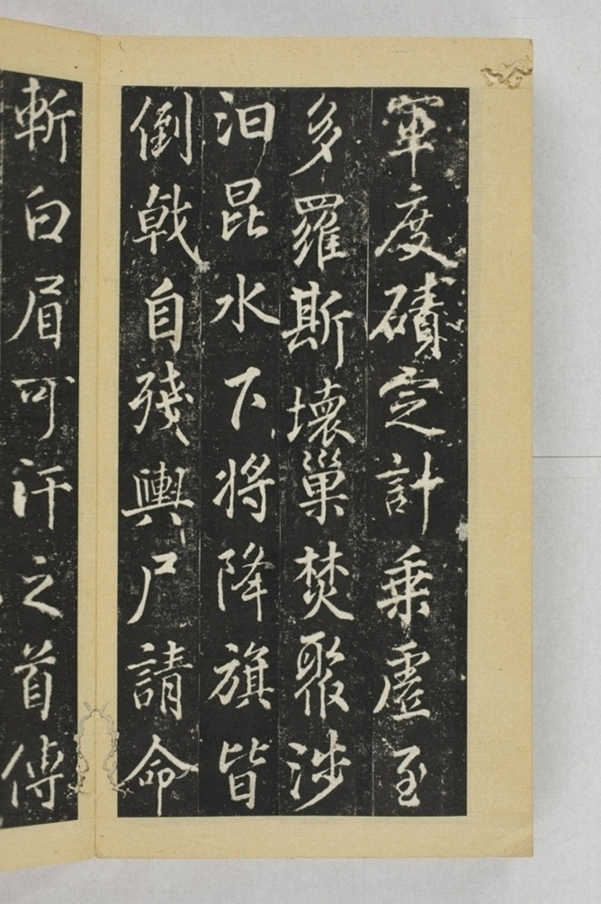 軍度磧定計乗虛至
多羅斯壞巢焚聚涉
汨昆水下將降旗皆
倒戟自殘輿尸請命
斬白眉可汗之首傳